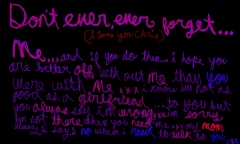 Don't ever, ever forget...
(I love you Chris)
Me... and if you do then... i hope you
are better off with out me than you
were with me xxx i know im not as
good as a girlfriend ... to you but
you always say i'm wrong... im sorry
im not there when you need me xx my mom
always says no when i need to talk to you